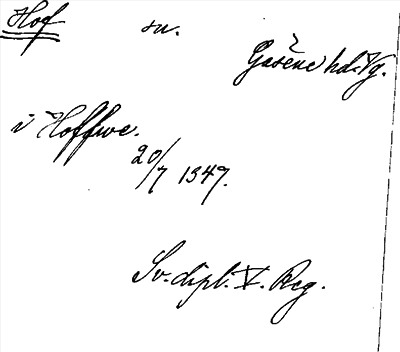 Hof sn.
Gasene hd. Vg.
i Hoffwe.
20/7 1347.
Sv. dipl. V. Reg.